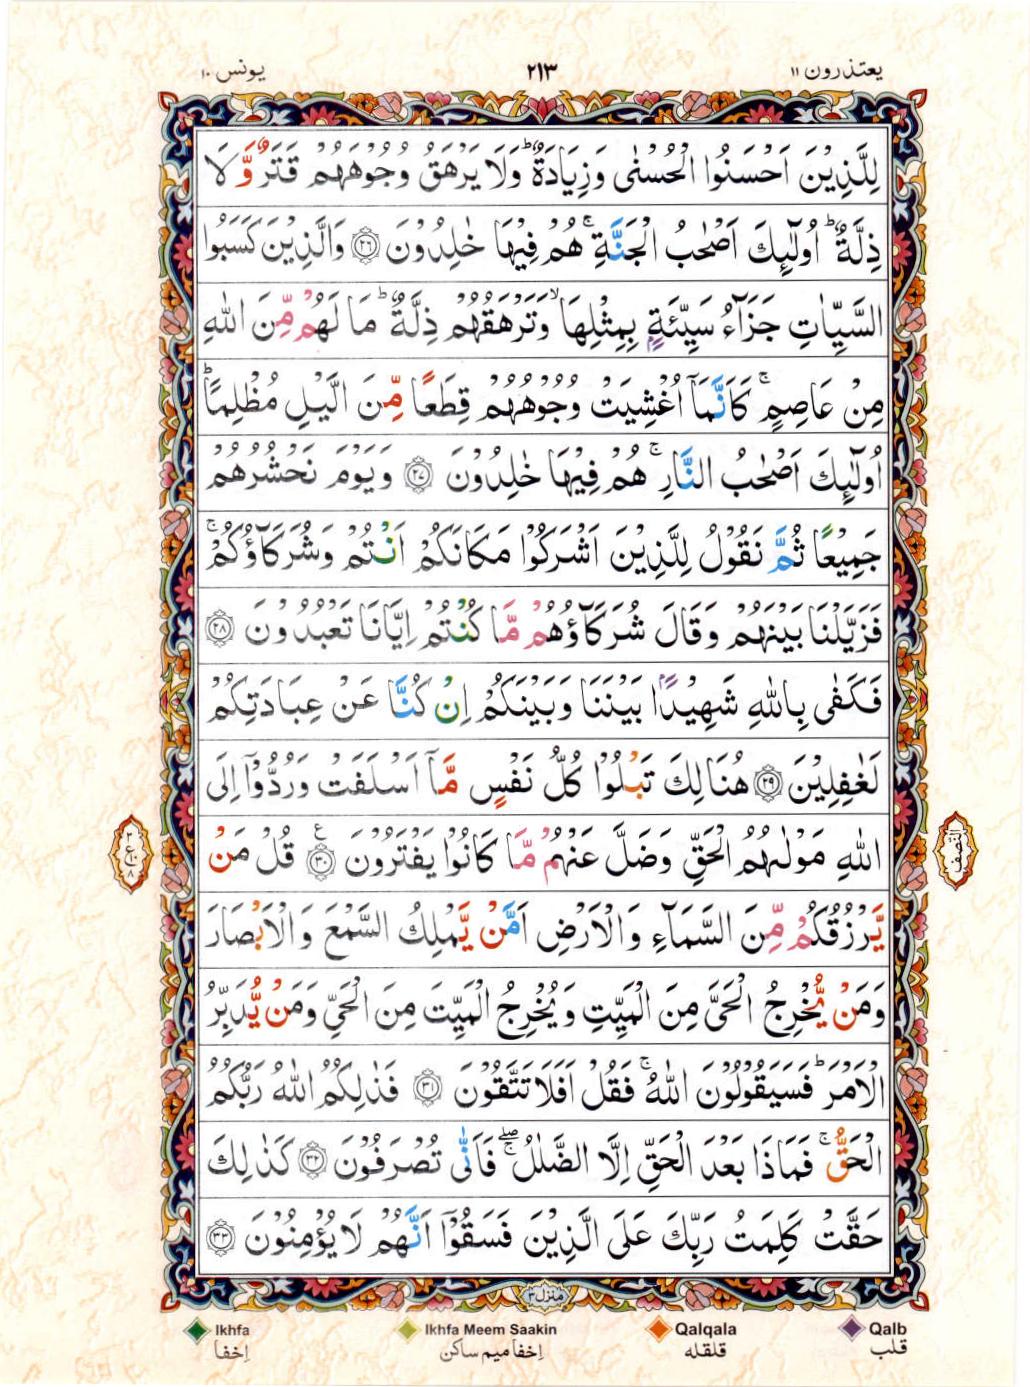 یعتذرون ۱۱
۲۱۳
یونس ۱۰
لِلَّذِيْنَ اَحْسَنُوا الْحُسْنٰى وَزِيَادَةٌ ؕ وَلَا يَرْهَقُ وُجُوْهَهُمْ قَتَرٌ وَّلَا
ذِلَّةٌ ؕ اُولٰٓئِكَ اَصْحٰبُ الْجَنَّةِ ۚ هُمْ فِيْهَا خٰلِدُوْنَ ۝۲۶ وَالَّذِيْنَ كَسَبُوا
السَّيِّاٰتِ جَزَآءُ سَيِّئَةٍۭ بِمِثْلِهَا ۙ وَتَرْهَقُهُمْ ذِلَّةٌ ؕ مَا لَهُمْ مِّنَ اللّٰهِ
مِنْ عَاصِمٍ ۚ كَاَنَّمَاۤ اُغْشِيَتْ وُجُوْهُهُمْ قِطَعًا مِّنَ الَّيْلِ مُظْلِمًا ؕ
اُولٰٓئِكَ اَصْحٰبُ النَّارِ ۚ هُمْ فِيْهَا خٰلِدُوْنَ ۝۲۷ وَيَوْمَ نَحْشُرُهُمْ
جَمِيْعًا ثُمَّ نَقُوْلُ لِلَّذِيْنَ اَشْرَكُوْا مَكَانَكُمْ اَنْتُمْ وَشُرَكَآؤُكُمْ ۚ
فَزَيَّلْنَا بَيْنَهُمْ وَقَالَ شُرَكَآؤُهُمْ مَّا كُنْتُمْ اِيَّانَا تَعْبُدُوْنَ ۝۲۸
فَكَفٰى بِاللّٰهِ شَهِيْدًۢا بَيْنَنَا وَبَيْنَكُمْ اِنْ كُنَّا عَنْ عِبَادَتِكُمْ
لَغٰفِلِيْنَ ۝۲۹ هُنَالِكَ تَبْلُوْا كُلُّ نَفْسٍ مَّاۤ اَسْلَفَتْ وَرُدُّوْۤا اِلَى
اللّٰهِ مَوْلٰىهُمُ الْحَقِّ وَضَلَّ عَنْهُمْ مَّا كَانُوْا يَفْتَرُوْنَ ۝۳۰ ع قُلْ مَنْ
يَّرْزُقُكُمْ مِّنَ السَّمَآءِ وَالْاَرْضِ اَمَّنْ يَّمْلِكُ السَّمْعَ وَالْاَبْصَارَ
وَمَنْ يُّخْرِجُ الْحَىَّ مِنَ الْمَيِّتِ وَيُخْرِجُ الْمَيِّتَ مِنَ الْحَىِّ وَمَنْ يُّدَبِّرُ
الْاَمْرَ ؕ فَسَيَقُوْلُوْنَ اللّٰهُ ۚ فَقُلْ اَفَلَا تَتَّقُوْنَ ۝۳۱ فَذٰلِكُمُ اللّٰهُ رَبُّكُمُ
الْحَقُّ ۚ فَمَاذَا بَعْدَ الْحَقِّ اِلَّا الضَّلٰلُ ۖۚ فَاَنّٰى تُصْرَفُوْنَ ۝۳۲ كَذٰلِكَ
حَقَّتْ كَلِمَتُ رَبِّكَ عَلَى الَّذِيْنَ فَسَقُوْۤا اَنَّهُمْ لَا يُؤْمِنُوْنَ ۝۳۳
النصف
منزل ۳
Ikhfa
Ikhfa Meem Saakin
Qalqala
Qalb
اِخفا
اِخفا میم ساکن
قلقله
قلب